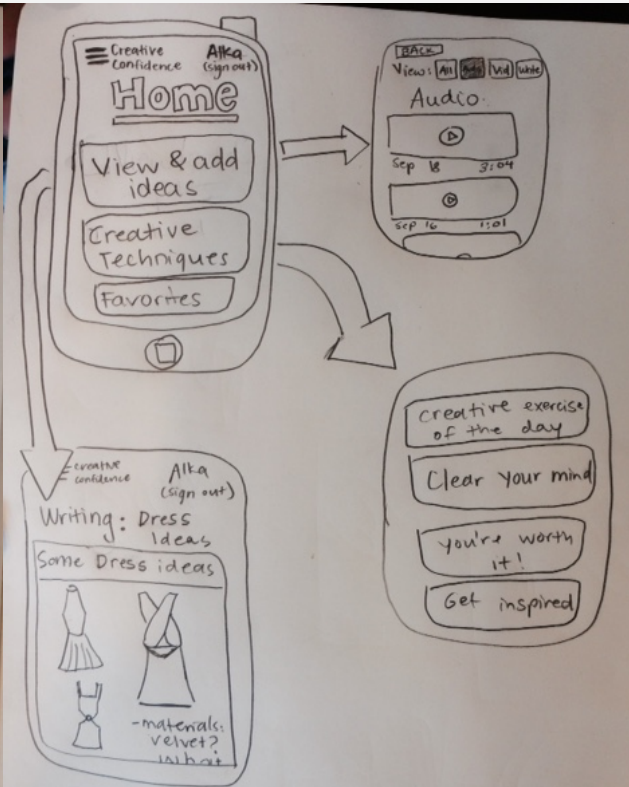 Creative
confidence
Alka
(sign out)
Home
View & add
ideas
Creative
Techniques
Favorites
BACK
View: All Audio Vid Write
Audio.
Sep 18 3:04
Sep 16 1:01
creative exercise
of the day
Clear your mind
you're worth
it!
Get inspired
creative
confidence
Alka
(sign out)
Writing: Dress
Ideas
Some Dress ideas
-materials:
velvet?
What